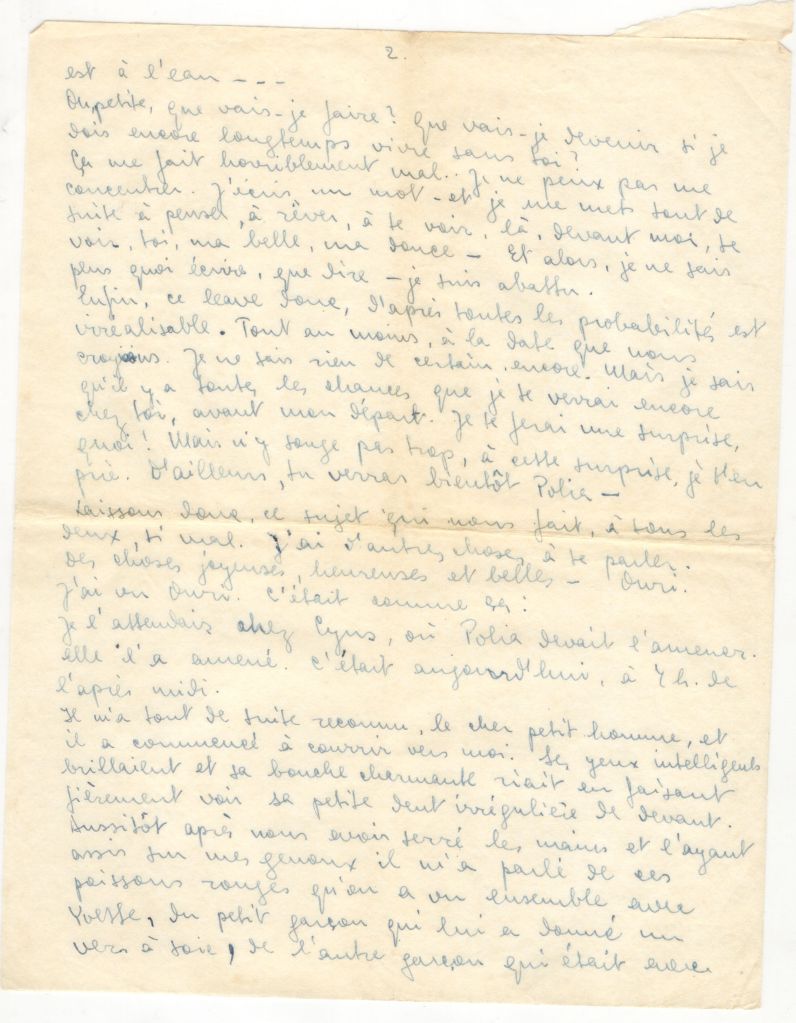 2.
est à l'eau - - -
Oh, petite, que vais-je faire? Que vais-je devenir si je
dois encore longtemps vivre sans toi?
Ça me fait horriblement mal.. Je ne peux pas me
concentrer. J'écris un mot - et je me mets tout de
suite à penser, à rêver, à te voir, là, devant moi, te
voir, toi, ma belle, ma douce - Et alors, je ne sais
plus quoi écrire, que dire - je suis abattu.
Enfin, ce leave donc, d'après toutes les probabilités est
irréalisable. Tout au moins, à la date que nous
croyions. Je ne sais rien de certain encore. Mais je sais
qu'il y a toutes les chances que je te verrai encore
chez toi, avant mon départ. Je te ferai une surprise,
quoi! Mais n'y songe pas trop, à cette surprise, je t'en
prie. D'ailleurs, tu verras bientôt Polia -
Laissons donc, ce sujet qui nous fait, à tous les
deux, si mal. J'ai d'autres choses à te parler.
Des choses joyeuses, heureuses et belles - Ouri.
J'ai vu Ouri. C'était comme ça:
Je l'attendais chez Cyns, où Polia devait l'amener.
elle l'a amené. C'était aujourd'hui, à 4 h. de
l'après midi.
Il m'a tout de suite reconnu, le cher petit homme, et
il a commencé à courrir vers moi. Ses yeux intelligents
brillaient et sa bouche charmante riait en faisant
fièrement voir sa petite dent irrégulière de devant.
Aussitôt après nous avoir serré les mains et l'ayant
assis sur mes genoux il m'a parlé de ces
poissons rouges qu'on a vu ensemble avec
Yvette, du petit garçon qui lui a donné un
vers à soie, de l'autre garçon qui était avec